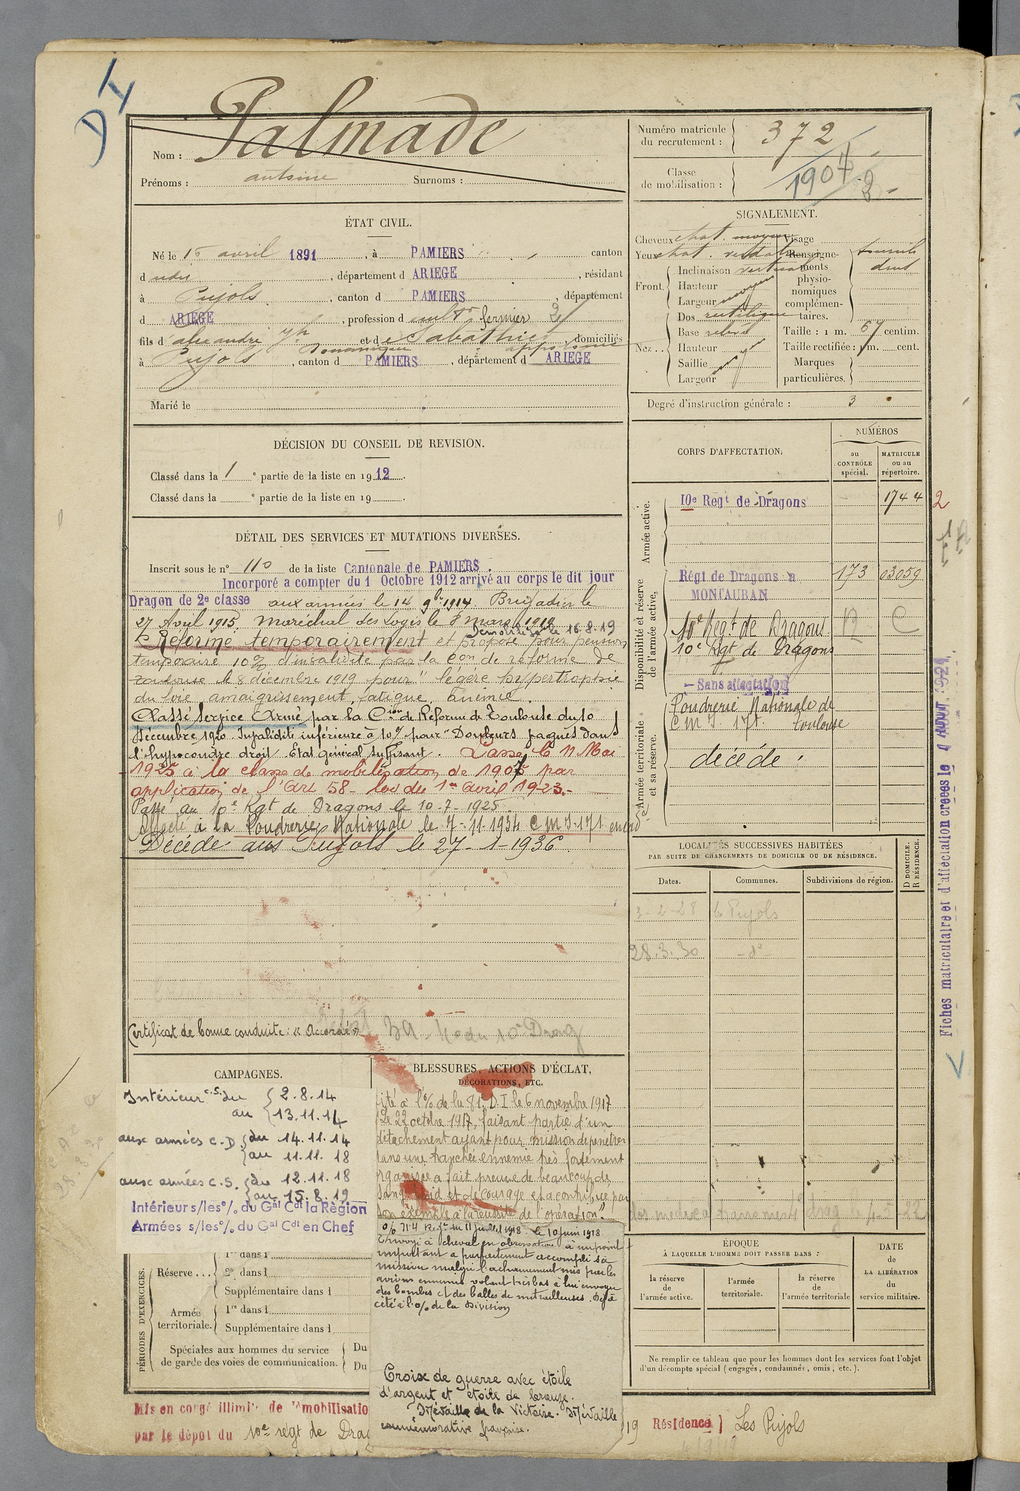 DI
Palmade
Nom :
Prénoms : antoine Surnoms :
Numéro matricule du recrutement : 372
Classe de mobilisation : 1907
ÉTAT CIVIL.
Né le 15 avril 1891, à PAMIERS, canton
d udit, département d ARIEGE, résidant
à Pujols, canton d PAMIERS, département
d ARIEGE, profession d cultr fermier
fils d alexandre Jh et d Sabathié domiciliés
à Pujols, canton d PAMIERS, département d ARIEGE
Marié le
SIGNALEMENT.
Cheveux chat. moyen Visage
Yeux chat. Renseigne-
Front. Inclinaison verticale ments
Hauteur physio-
Largeur moyen nomiques
complémen-
Dos rectiligne taires.
Nez. Base Taille : 1 m. 67 centim.
Hauteur Taille rectifiée : 1m. cent.
Saillie Marques
Largeur particulières.
Degré d'instruction générale : 3
DÉCISION DU CONSEIL DE REVISION.
Classé dans la 1 e partie de la liste en 1912.
Classé dans la e partie de la liste en 19
CORPS D'AFFECTATION.
NUMÉROS
au CONTRÔLE spécial.
MATRICULE ou au répertoire.
Armée active.
10e Régt de Dragons 1744
2
Disponibilité et réserve de l'armée active,
Régt de Dragons à 173 03059
MONTAUBAN
10e Regt de Dragons
10e Rgt de Dragons
- Sans affectation
Armée territoriale et sa réserve.
Poudrerie Nationale de
C M I 171. Toulouse
décédé.
DÉTAIL DES SERVICES ET MUTATIONS DIVERSES.
Inscrit sous le n° 110 de la liste Cantonale de PAMIERS.
Incorporé à compter du 1 Octobre 1912 arrivé au corps le dit jour
Dragon de 2e classe aux armées le 14 9bre 1914. Brigadier le
27 Avril 1915. Maréchal des logis le 8 mars 1919
Démobilisé le 16-8-19
Réformé temporairement et proposé pour pension
temporaire 10% d'invalidité par la Con de réforme de
Toulouse le 8 décembre 1919 pour "légère hypertrophie
du foie, amaigrissement, fatigue, anémie.
Classé Service Armé par la Cion de Réforme de Toulouse du 10
décembre 1920. Invalidité inférieure à 10% pour "Douleurs vagues dans
l'hypocondre droit. Etat général suffisant". Passé le 11 Mai
1925 à la classe de mobilisation de 1907 par
application de l'Art 58 - loi du 1er avril 1923.-
Passé au 10e Rgt de Dragons le 10-7-1925.
Affecté à la Poudrerie Nationale le 7-11-1934 C M I 171
Décédé aux Pujols le 27-1-1936.
Certificat de bonne conduite : "Accordé"
LOCALITÉS SUCCESSIVES HABITÉES
PAR SUITE DE CHANGEMENTS DE DOMICILE OU DE RÉSIDENCE.
Dates. Communes. Subdivisions de région. D DOMICILE. R RÉSIDENCE.
3-2-28 Ls Pujols
28.3.30 - d°
Fiches matriculaire et d'affectation créées le
CAMPAGNES.
Intérieur c.s. du 2.8.14
au 13.11.14
aux armées C.D. du 14.11.14
au 11.11.18
aux armées C.S. du 12.11.18
au 15.8.19
Intérieur s/les o/. du Gal Cdt la Région
Armées s/les o/. du Gal Cdt en Chef
PÉRIODES D'EXERCICES.
1re dans l
Réserve ... 2e dans l
Supplémentaire dans l
Armée territoriale. 1re dans l
Supplémentaire dans l
Spéciales aux hommes du service Du
de garde des voies de communication. Du
BLESSURES, ACTIONS D'ÉCLAT,
DÉCORATIONS, ETC.
Cité à l'o/. de la 81. D.I le 6 novembre 1917
Le 22 octobre 1917, faisant partie d'un
détachement ayant pour mission de pénétrer
dans une tranchée ennemie très fortement
organisée a fait preuve de beaucoup de
sang froid et de courage et a contribué par
son exemple à la réussite de l'opération".
le 10 juin 1918
Envoyé à cheval en observation à un point
important a parfaitement accompli sa
mission malgré l'acharnement mis par les
avions ennemis volant très bas à lui envoyer
des bombes et des balles de mitrailleuses. Déjà
cité à l'o/. de la Division
Croix de guerre avec étoile
d'argent et étoile de bronze.
Médaille de la Victoire. Médaille
commémorative française.
ÉPOQUE
À LAQUELLE L'HOMME DOIT PASSER DANS :
la réserve de l'armée active.
l'armée territoriale.
la réserve de l'armée territoriale
DATE de LA LIBÉRATION du service militaire.
Ne remplir ce tableau que pour les hommes dont les services font l'objet
d'un décompte spécial (engagés, condamnés, omis, etc.).
Mis en congé illimité de démobilisation
par le dépôt du 10e régt de Drag
19 Résidence Les Pujols